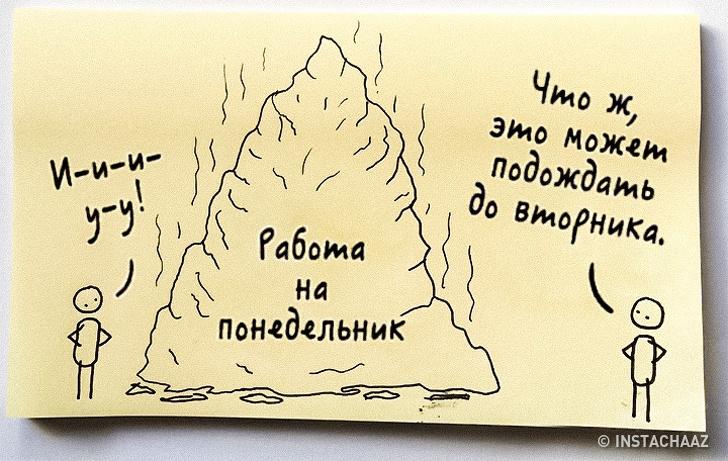 И-и-и-
у-у!
Работа
на
понедельник
Что ж,
это может
подождать
до вторника.
© INSTACHAAZ